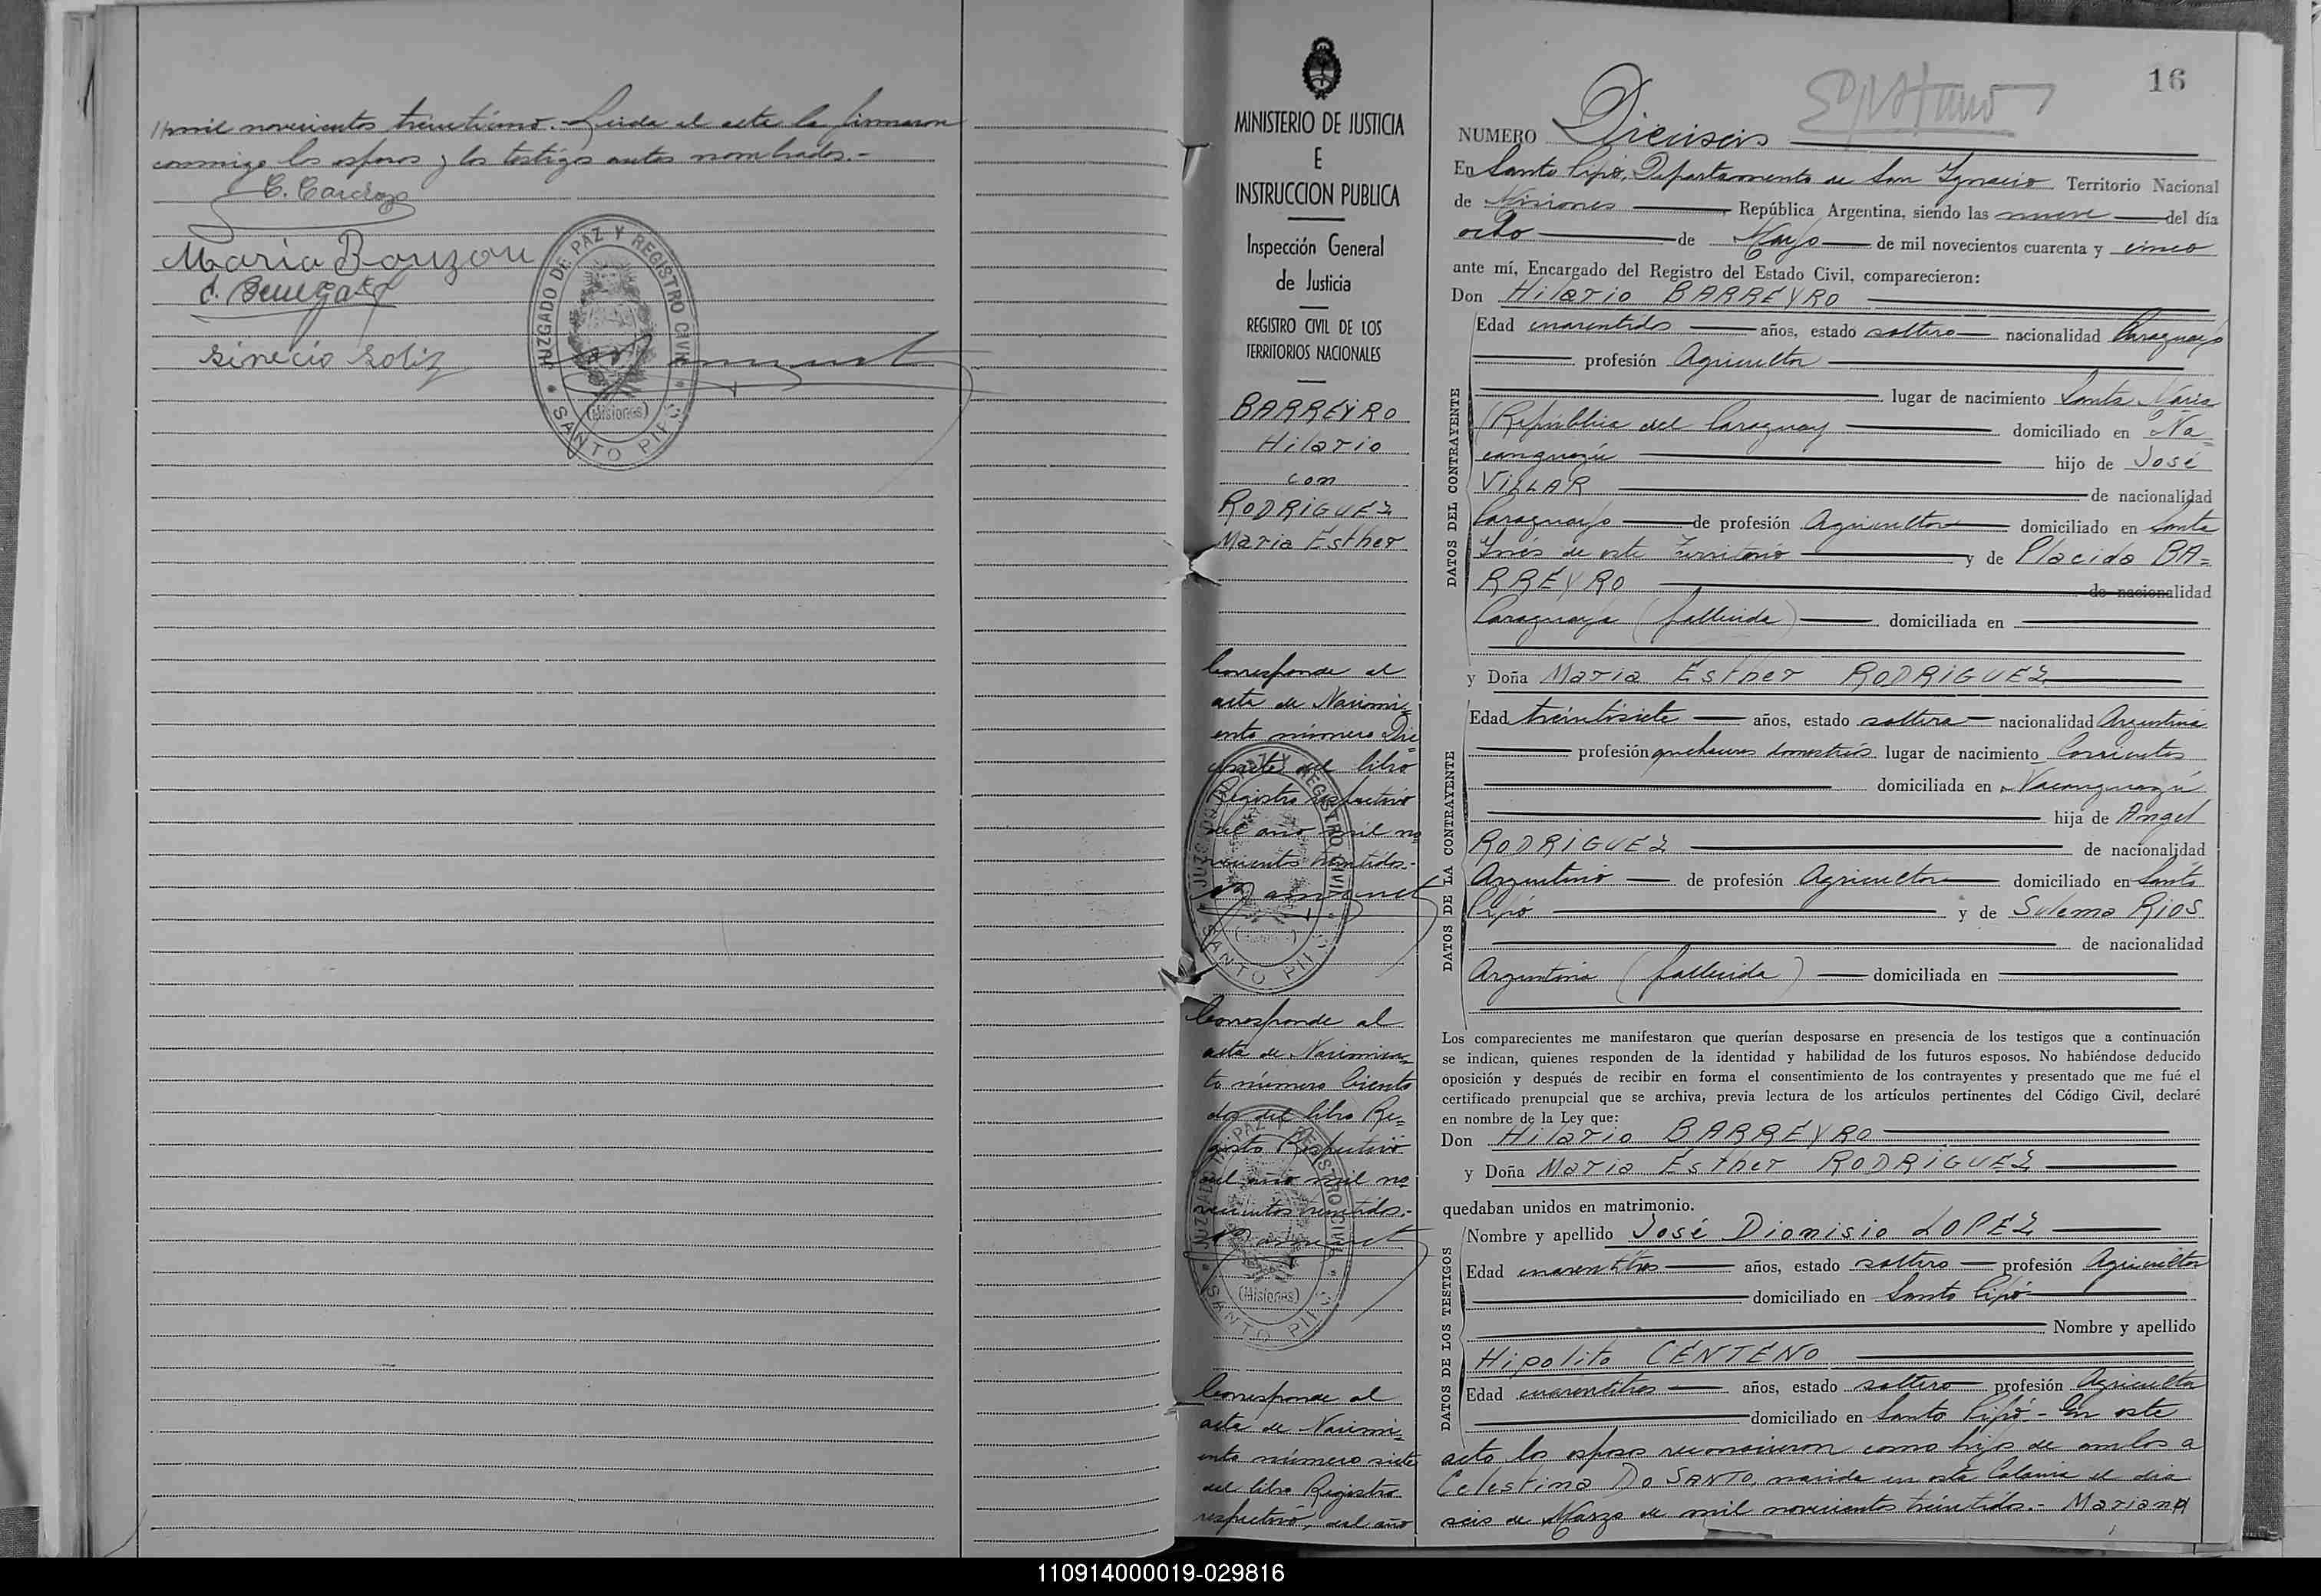 mil novecientos treintiuno.- Leida el acta la firmaron
conmigo los esposos y los testigos antes nombrados.-
C. Cardozo
Maria Bouzon
Sinecio Soliz
JUZGADO DE PAZ Y REGISTRO CIVIL
(Misiones)
SANTO PIPO
MINISTERIO DE JUSTICIA
E
INSTRUCCION PUBLICA
Inspección General
de Justicia
REGISTRO CIVIL DE LOS
TERRITORIOS NACIONALES
BARREYRO
Hilario
con
RODRIGUEZ
Maria Esther
Corresponde al
acta de Nacimi=
ento número Die
cisiete del libro
Registro respectivo
del año mil no
vecientos treintidos.-
JUZGADO DE PAZ Y REGISTRO CIVIL
SANTO PIPO
Corresponde al
acta de Nacimien=
to número Ciento
dos del libro Re=
gistro Respectivo
del año mil no
vecientos treintidos.-
JUZGADO DE PAZ Y REGISTRO CIVIL
(Misiones)
SANTO PIPO
Corresponde al
acta de Nacimi=
ento número siete
del libro Registro
respectivo, del año
16
NUMERO Dieciseis
En Santo Pipó, Departamento de San Ignacio Territorio Nacional
de Misiones República Argentina, siendo las nueve del día
ocho de Mayo de mil novecientos cuarenta y cinco
ante mí, Encargado del Registro del Estado Civil, comparecieron:
Don Hilario BARREYRO
DATOS DEL CONTRAYENTE
Edad cuarentidos años, estado soltero nacionalidad Paraguayo
profesión Agricultor
lugar de nacimiento Santa Maria
(República del Paraguay domiciliado en Ña=
canguazú hijo de José
VILLAR de nacionalidad
Paraguayo de profesión Agricultor domiciliado en Santa
Inés de este Territorio y de Placida BA=
RREYRO de nacionalidad
Paraguaya (fallecida) domiciliada en
y Doña Maria Esther RODRIGUEZ
DATOS DE LA CONTRAYENTE
Edad treintisiete años, estado soltera nacionalidad Argentina
profesión quehaceres domesticos lugar de nacimiento Corrientes
domiciliada en Ñacanguazú
hija de Angel
RODRIGUEZ de nacionalidad
Argentino de profesión Agricultor domiciliado en Santo
Pipó y de Sulema Rios
de nacionalidad
Argentina (fallecida) domiciliada en
Los comparecientes me manifestaron que querían desposarse en presencia de los testigos que a continuación
se indican, quienes responden de la identidad y habilidad de los futuros esposos. No habiéndose deducido
oposición y después de recibir en forma el consentimiento de los contrayentes y presentado que me fué el
certificado prenupcial que se archiva, previa lectura de los artículos pertinentes del Código Civil, declaré
en nombre de la Ley que:
Don Hilario BARREYRO
y Doña Maria Esther RODRIGUEZ
quedaban unidos en matrimonio.
DATOS DE LOS TESTIGOS
Nombre y apellido José Dionisio LOPEZ
Edad cuarentitres años, estado soltero profesión Agricultor
domiciliado en Santo Pipó
Nombre y apellido
Hipolito CENTENO
Edad cuarentitres años, estado soltero profesión Agricultor
domiciliado en Santo Pipó - En este
acto los esposos reconocieron como hijos de ambos a
Celestina Do SANTO, nacida en esta Colonia el dia
seis de Marzo de mil novecientos treintidos.- Mariana
110914000019-029816